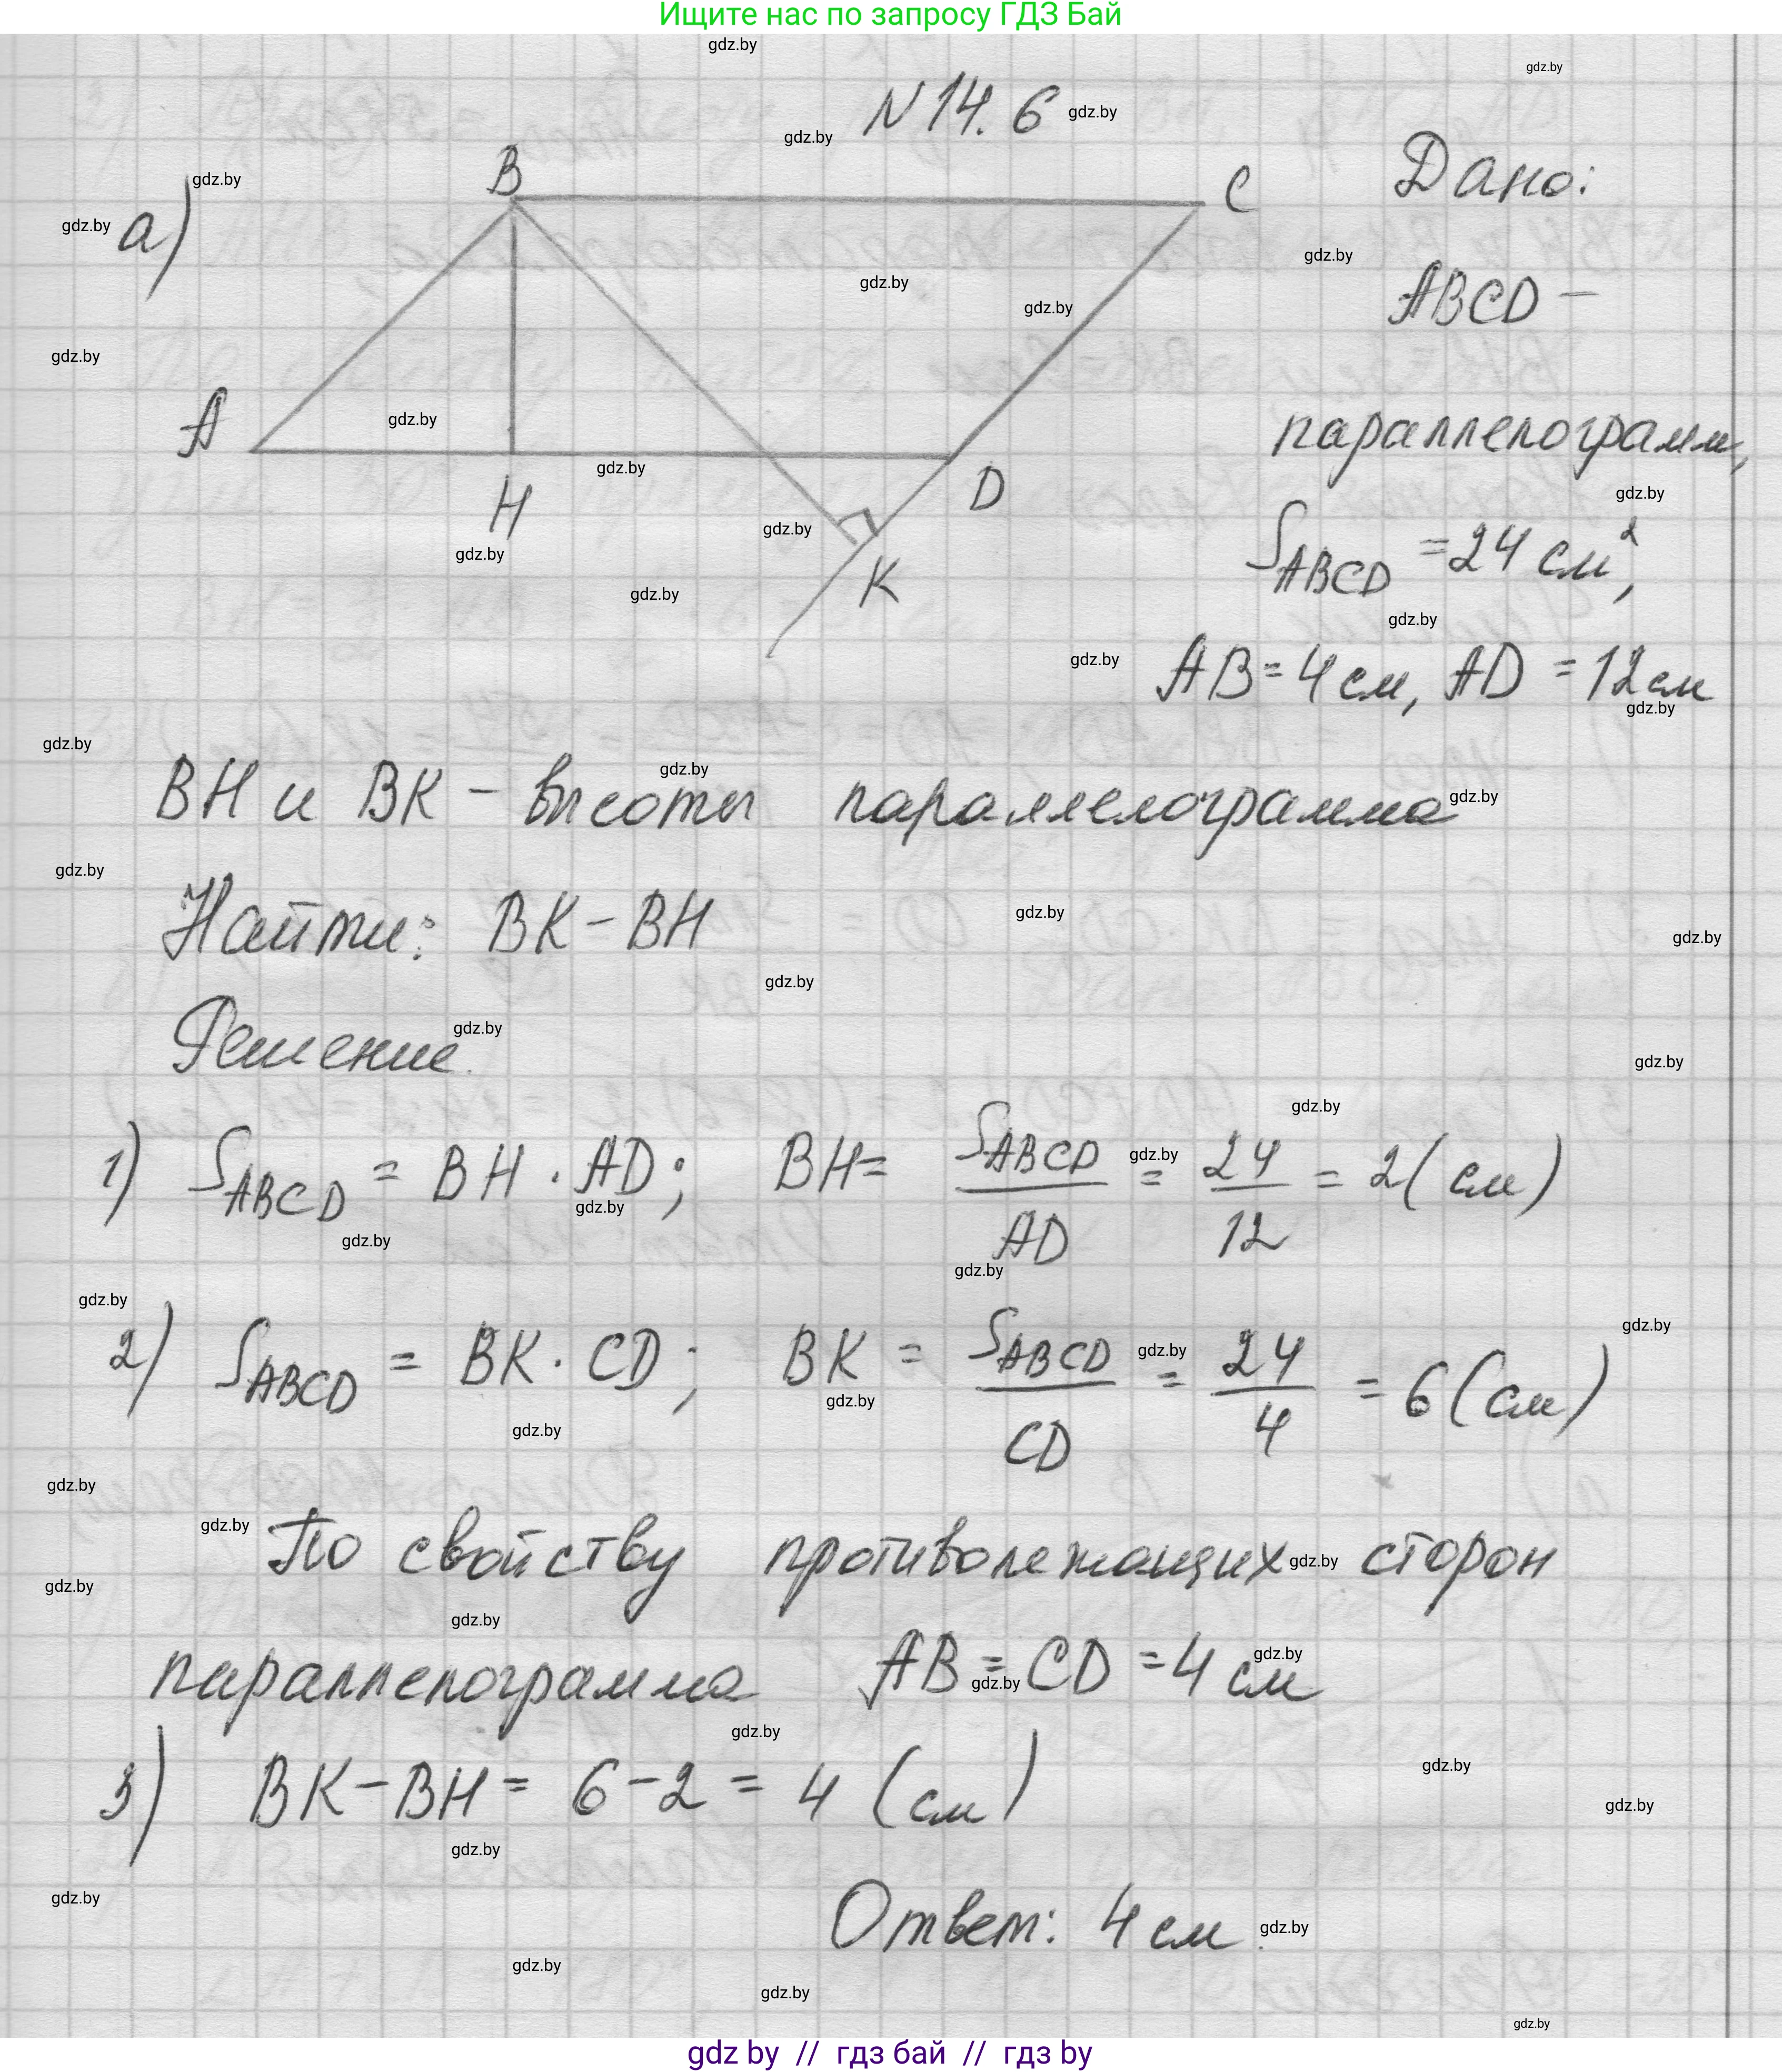 Ищите нас по запросу ГДЗ Бай
N 14.6
а)
B
C
A
H
D
K
Дано:
ABCD –
параллелограмм,
S_ABCD = 24 см²,
AB = 4 см, AD = 12 см
BH и BK – высоты параллелограмма
Найти: BK – BH
Решение.
1) S_ABCD = BH · AD; BH = S_ABCD / AD = 24 / 12 = 2 (см)
2) S_ABCD = BK · CD; BK = S_ABCD / CD = 24 / 4 = 6 (см)
По свойству противолежащих сторон
параллелограмма AB = CD = 4 см
3) BK – BH = 6 – 2 = 4 (см)
Ответ: 4 см.
gdz.by
gdz by // гдз бай // гдз by